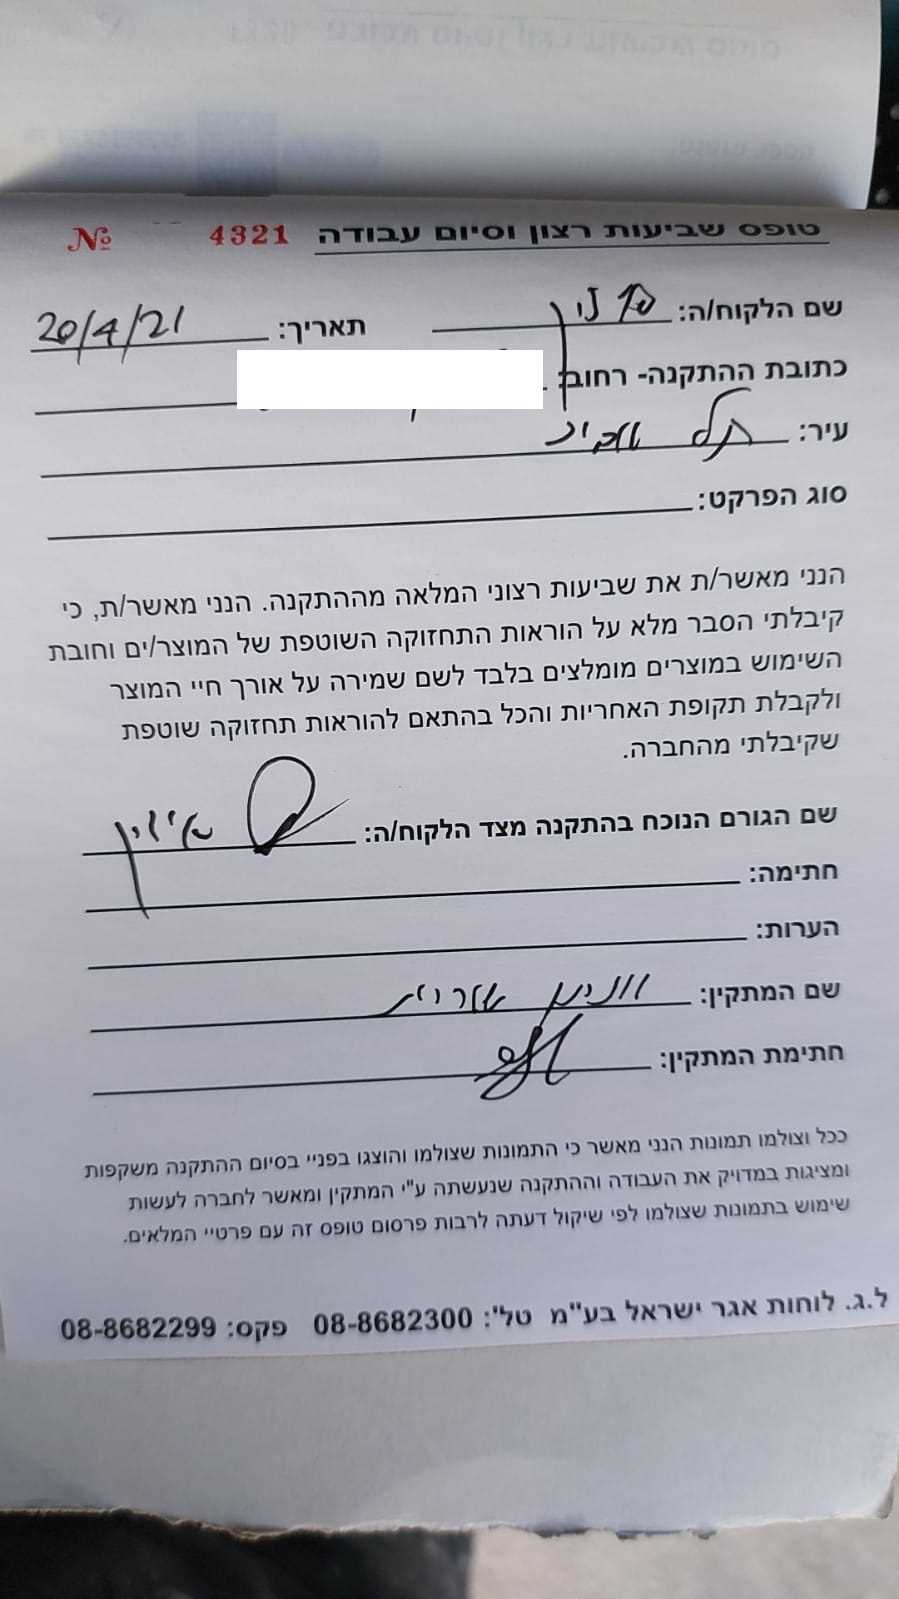 טופס שביעות רצון וסיום עבודה 4321 №
שם הלקוח/ה: תאריך: 20/4/21
כתובת ההתקנה- רחוב:
עיר: תל אביב
סוג הפרקט:
הנני מאשר/ת את שביעות רצוני המלאה מההתקנה. הנני מאשר/ת, כי
קיבלתי הסבר מלא על הוראות התחזוקה השוטפת של המוצר/ים וחובת
השימוש במוצרים מומלצים בלבד לשם שמירה על אורך חיי המוצר
ולקבלת תקופת האחריות והכל בהתאם להוראות תחזוקה שוטפת
שקיבלתי מהחברה.
שם הגורם הנוכח בהתקנה מצד הלקוח/ה:
חתימה:
הערות:
שם המתקין:
חתימת המתקין:
ככל וצולמו תמונות הנני מאשר כי התמונות שצולמו והוצגו בפניי בסיום ההתקנה משקפות
ומציגות במדויק את העבודה וההתקנה שנעשתה ע"י המתקין ומאשר לחברה לעשות
שימוש בתמונות שצולמו לפי שיקול דעתה לרבות פרסום טופס זה עם פרטיי המלאים.
ל.ג. לוחות אגר ישראל בע"מ טל': 08-8682300 פקס: 08-8682299